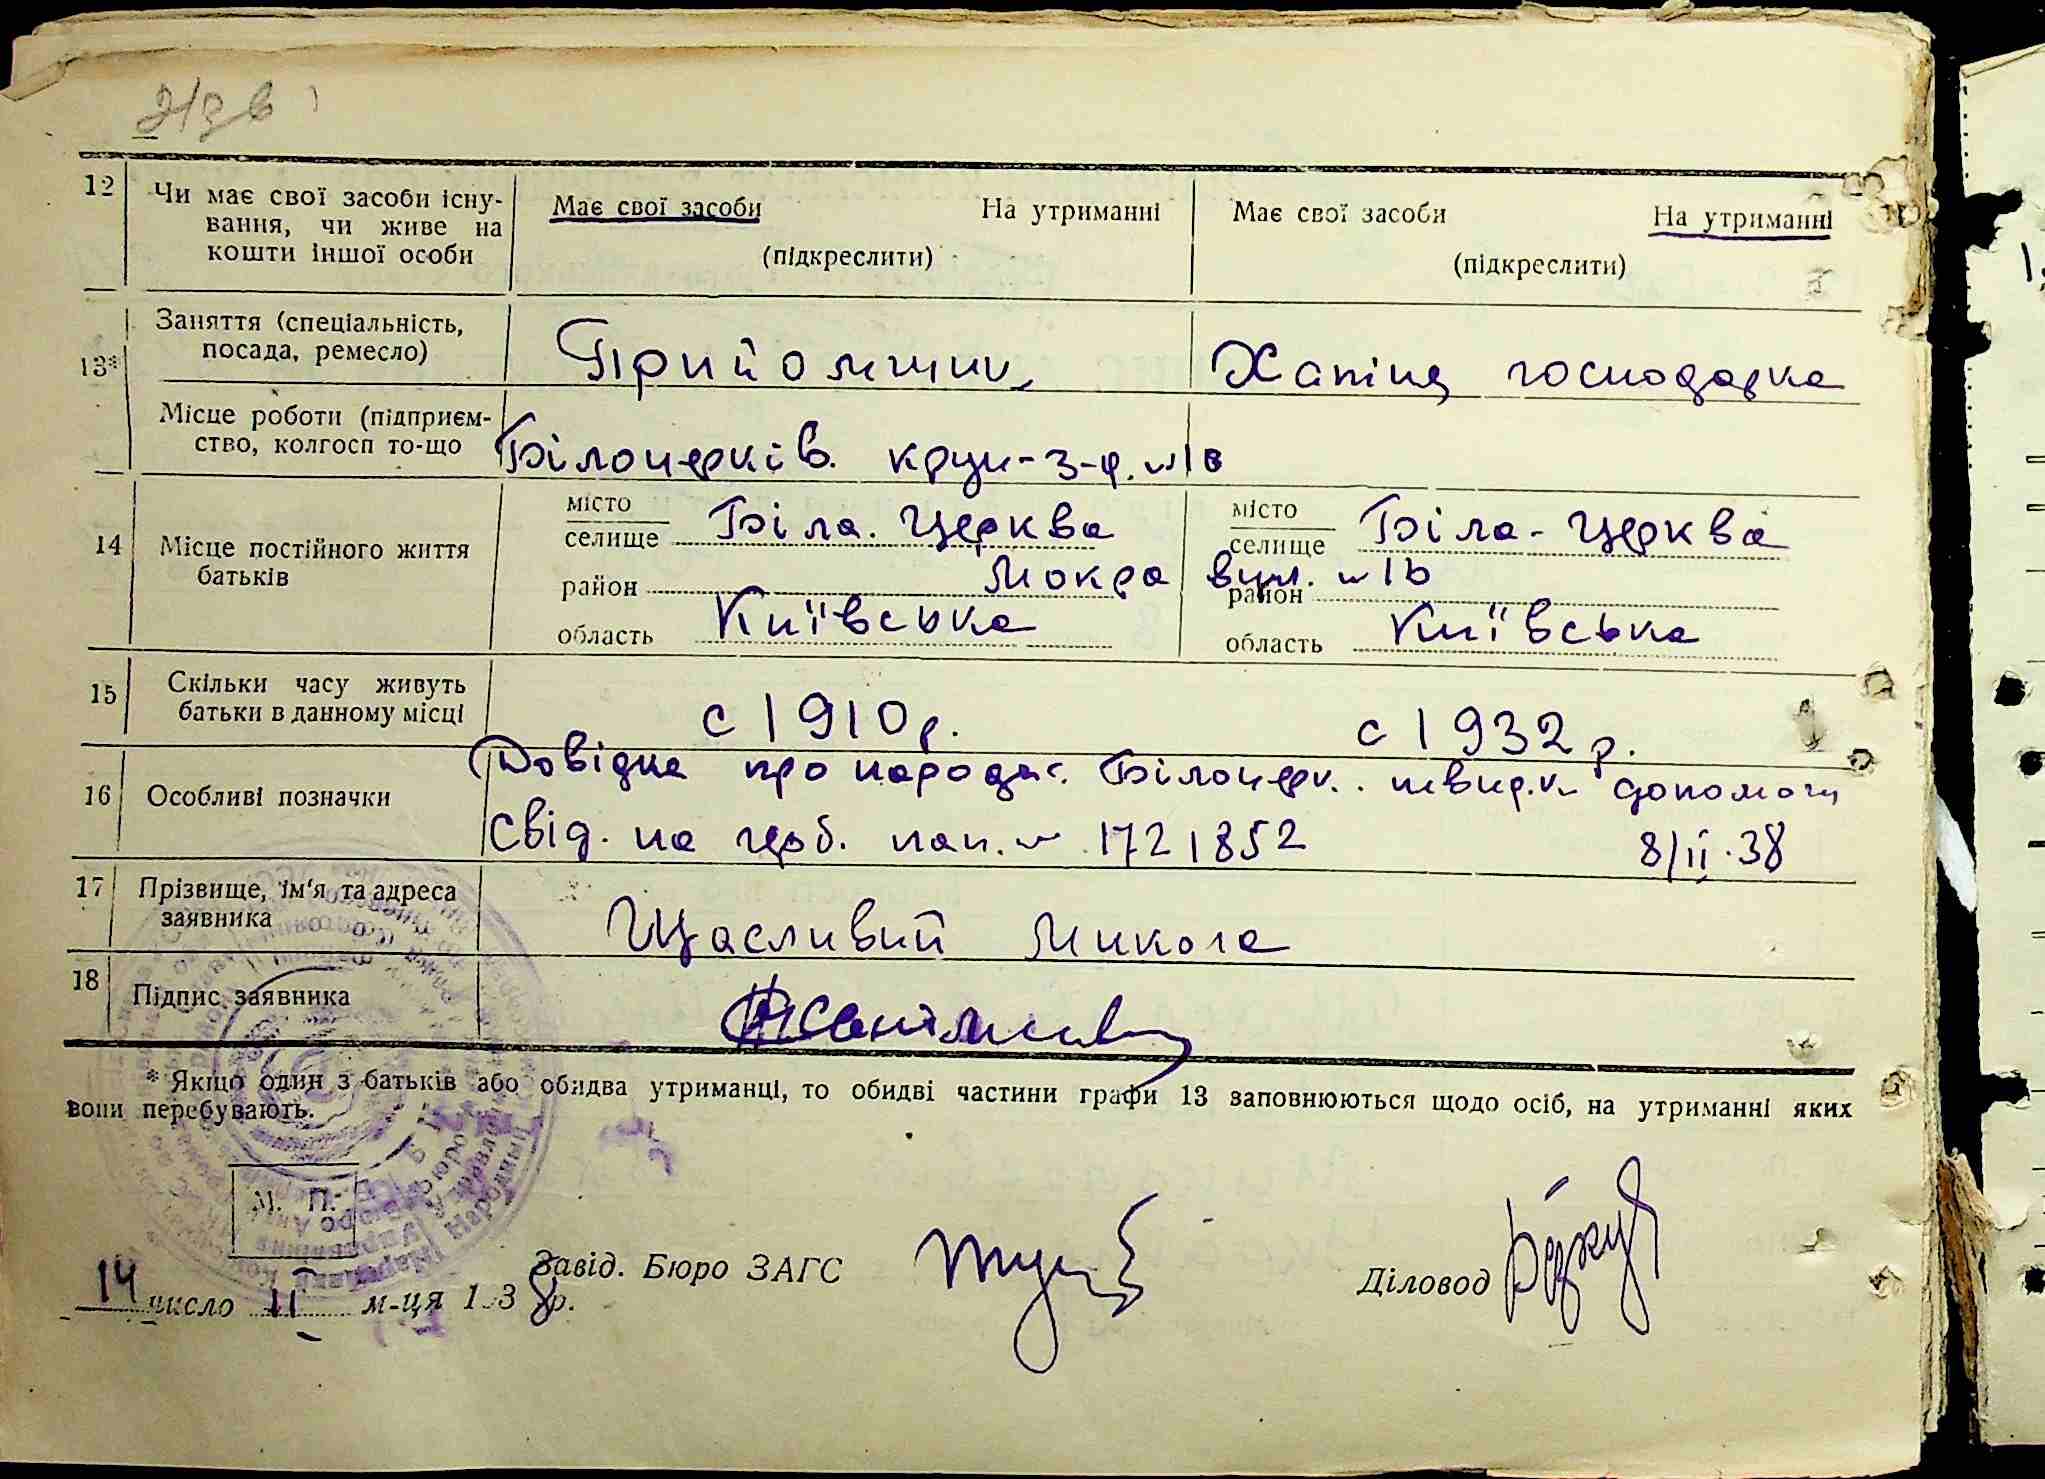 12 Чи має свої засоби існу- Має свої засоби На утриманні Має свої засоби На утриманні
вання, чи живе на
кошти іншої особи (підкреслити) (підкреслити)
13* Заняття (спеціальність,
посада, ремесло) Прийомщик Хатня господарка
Місце роботи (підприєм-
ство, колгосп то-що Білоцерків.
14 Місце постійного життя
батьків
місто Біла. Церква місто Біла-Церква
селище селище
район Мокра вул. район
область Київська область Київська
15 Скільки часу живуть
батьки в данному місці с 1910 р. с 1932 р.
16 Особливі позначки Довідка про народж. Білоцерк. швидк. допомоги
Свід. на герб. пап. № 1721852 8/II.38
17 Прізвище, ім'я та адреса
заявника Щасливий Микола
18 Підпис заявника
* Якщо один з батьків або обидва утриманці, то обидві частини графи 13 заповнюються щодо осіб, на утриманні яких
вони перебувають.
М. П.
Завід. Бюро ЗАГС Діловод
14 число II м-ця 1938 р.